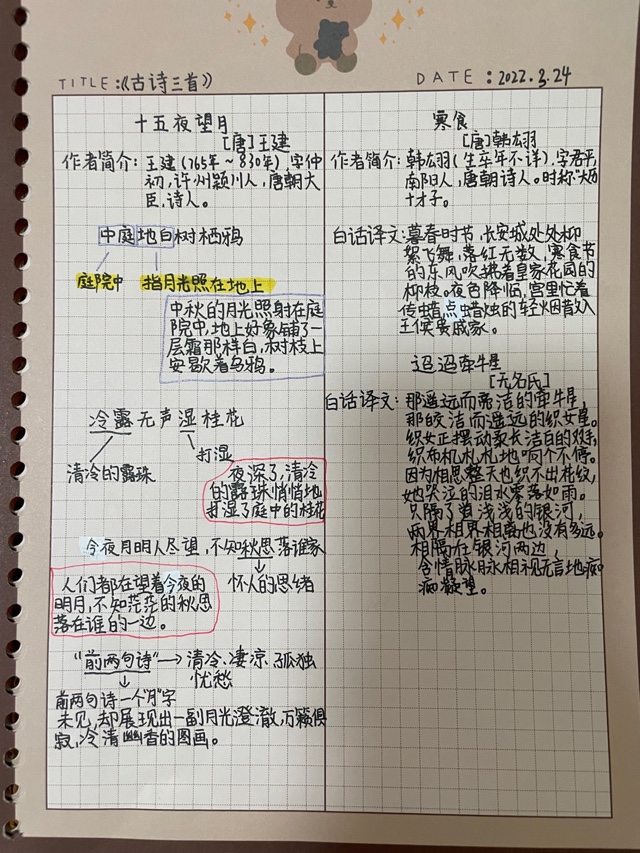 TITLE:《古诗三首》
DATE:2022.3.24
十五夜望月
[唐]王建
作者简介:王建(765年~830年),字仲
初,许州颍川人,唐朝大
臣,诗人。
中庭地白树栖鸦
庭院中 指月光照在地上
中秋的月光照射在庭
院中,地上好象铺了一
层霜那样白,树枝上
安歇着乌鸦。
冷露无声湿桂花
清冷的露珠 打湿
夜深了,清冷
的露珠悄悄地
打湿了庭中的桂花
今夜月明人尽望,不知秋思落谁家
怀人的思绪
人们都在望着今夜的
明月,不知茫茫的秋思
落在谁的一边。
“前两句诗”→清冷、凄凉、孤独
忧愁
前两句诗一个“月”字
未见,却展现出一副月光澄澈,万籁俱
寂,冷清幽香的图画。
寒食
[唐]韩翃
作者简介:韩翃(生卒年不详),字君平,
南阳人,唐朝诗人。时称“大历
十才子。
白话译文:暮春时节,长安城处处柳
絮飞舞,落红无数,寒食节
的东风吹拂着皇家花园的
柳枝。夜色降临,宫里忙着
传蜡,点蜡烛的轻烟散入
王侯贵戚家。
迢迢牵牛星
[无名氏]
白话译文:那遥远而亮洁的牵牛星,
那皎洁而遥远的织女星。
织女正摆动柔长洁白的双手,
织布机札札地响个不停。
因为相思整天也织不出花纹,
她哭泣的泪水零落如雨。
只隔了道浅浅的银河,
两界相界相离也没有多远。
相隔在银河两边,
含情脉脉相视无言地痴
痴凝望。